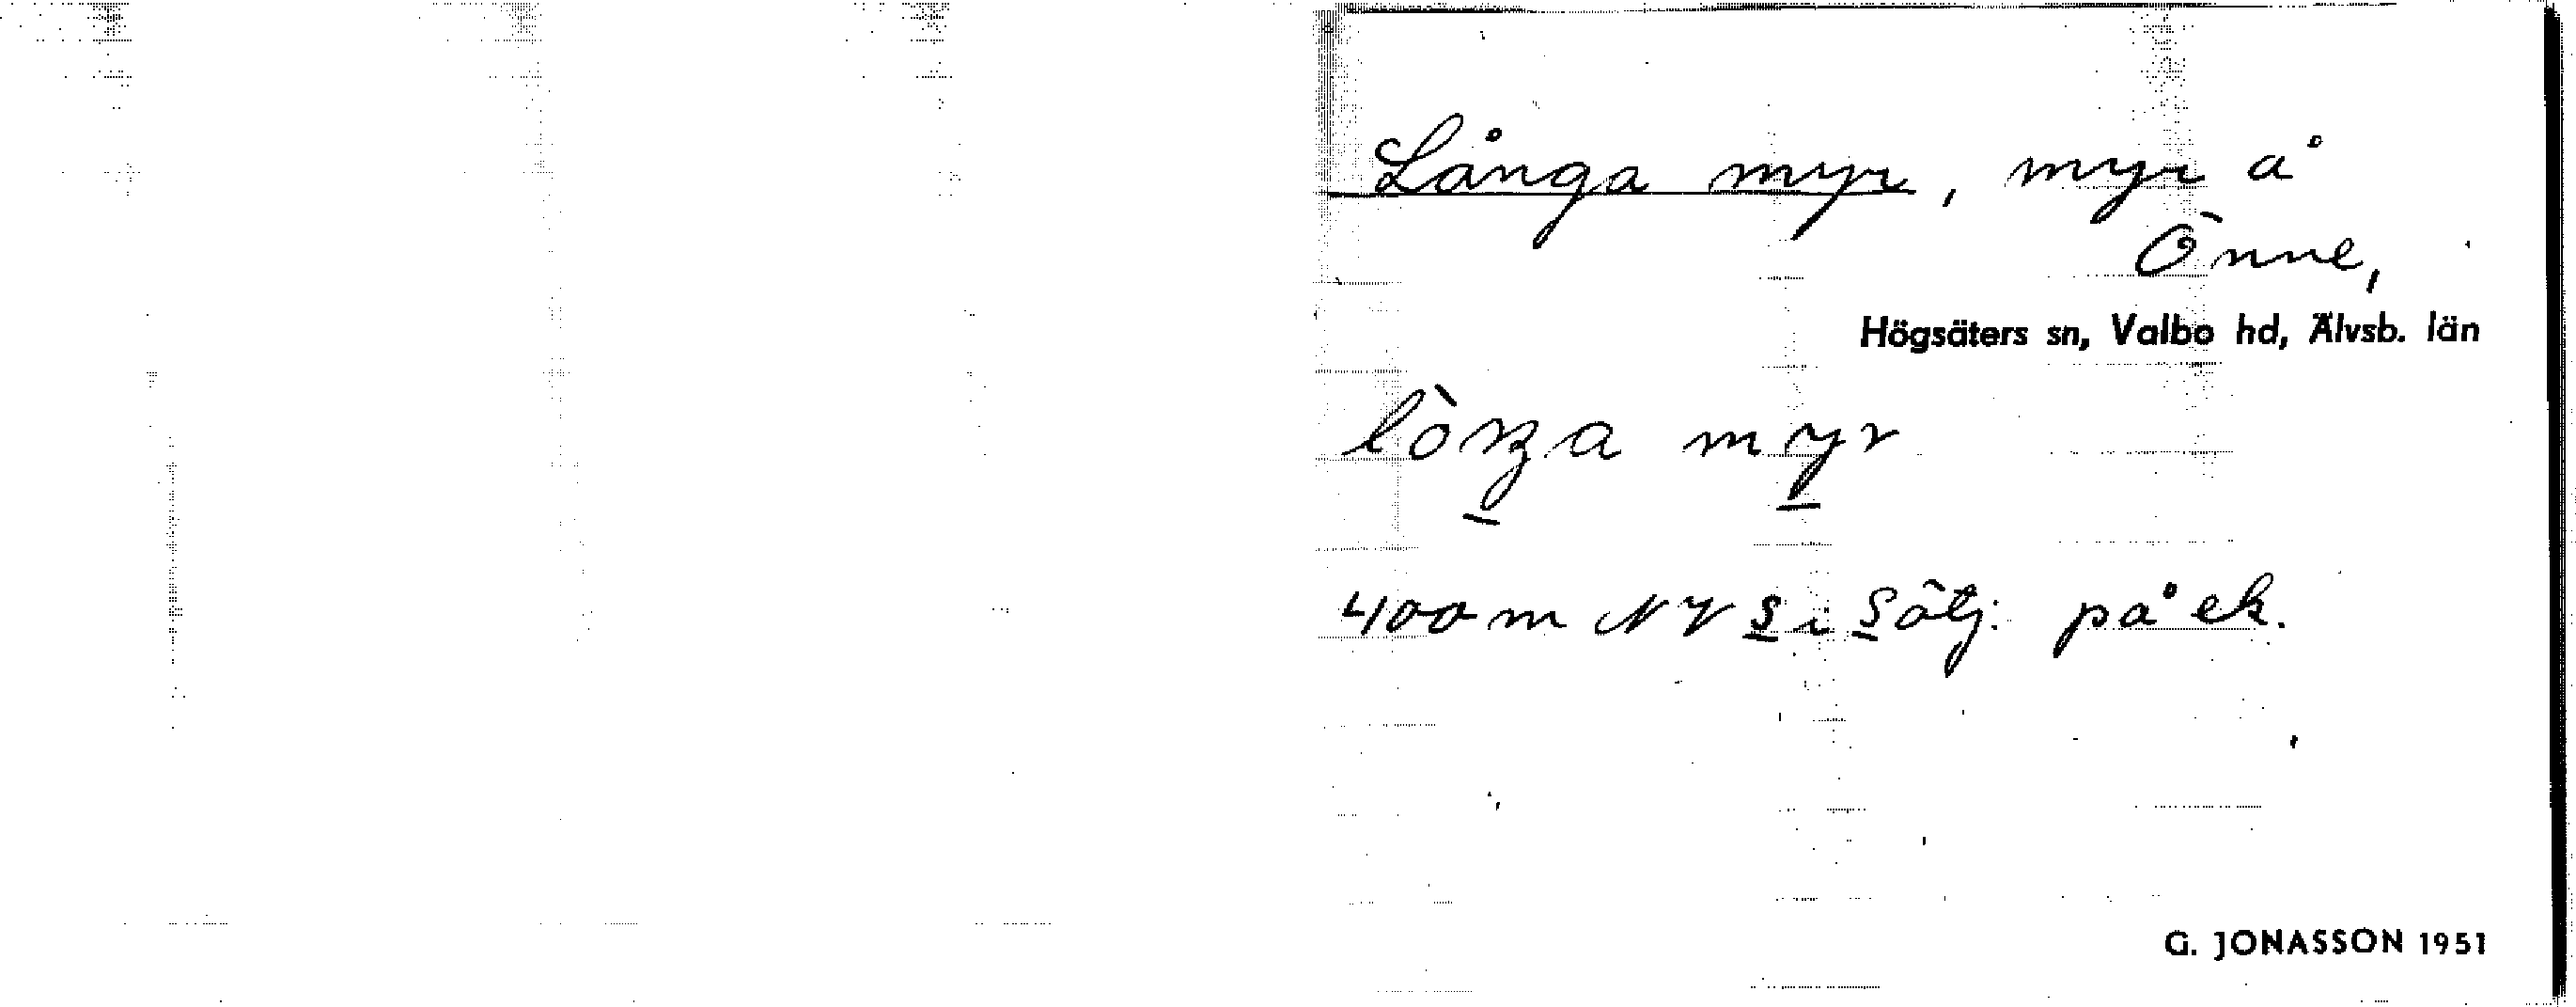 Långa myr, myr å
Önne,
Högsäters sn, Valbo hd, Älvsb. län
myr
400 m NV S i Sätj: på ek.
G. JONASSON 1951